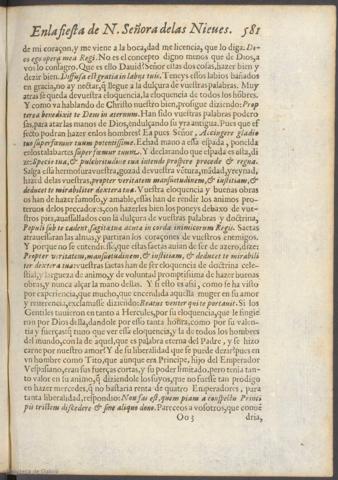 En la fiesta de N. Señora de las Nieues. 581
de mi coraçon, y me viene a la boca, dad me licencia, que lo diga. Di-
co ego opera mea Regi. No es el concepto digno menos que de Dios, a
vos lo consagro. Que es ello Dauid? Señor estas dos cosas, hazer bien y
dezir bien. Diffusa est gratia in labijs tuis. Teneys essos labios bañados
en gracia, no ay nectar, q̃ llegue a la dulçura de vuestras palabras. Muy
atras se queda de vuestra eloquencia, la eloquencia de todos los hõbres.
Y como va hablando de Christo nuestro bien, prosigue diziendo: Prop
terea benedixit te Deus in aeternum. Han sido vuestras palabras podero
sas, para atar las manos de Dios, endulçando su yra antigua. Pues que ef
fecto podran hazer en los hombres? Ea pues Señor, Accingere gladio
tuo super fœmur tuum potentissime. Echad mano a essa espada, ponelda
en los talabartes super fœmur tuum. Y declarando que espada es essa, di-
ze: Specie tua, & pulchritudine tua intende prospere procede & regna.
Salga essa hermosura vuestra, gozad de vuestra vẽtura, mãdad, y reynad,
hazed de las vuestras, propter veritatem mansuetudinem, & iustitiam, &
deducet te mirabiliter dextera tua. Vuestra eloquencia y buenas obras
os han de hazer famoso, y amable, essas han de rendir los animos pro-
teruos de los pecadores, con hazerles bien los poneys debaxo de vues-
tros pies, auassallados con la dulçura de vuestras palabras y doctrina,
Populi sub te cadent sagittæ tuæ acutæ in corda inimicorum Regis. Saetas
atrauessaran las almas, y partiran los coraçones de vuestros enemigos.
Y porque no se entendiesse, que estas saetas auian de ser de azero, dize:
Propter veritatem, mansuetudinem, & iustitiam, & deducet te mirabili
ter dextera tua: vuestras saetas han de ser eloquencia de doctrina cele-
stial, y largueza de animo, y de voluntad promptissima de hazer buenas
obras, y nunca alçar la mano dellas. Y si esso es assi, como se ha visto
por experiencia, que mucho, que encendida aquella muger en su amor
y reuerencia, exclamasse diziendo: Beatus venter qui te portauit. Si los
Gentiles tuuieron en tanto a Hercules, por su eloquencia, que le fingie
ron por Dios della, dandole por esso tanta hõrra, como por su valen-
tia y fuerças; q̃ tuuo que ver essa eloquencia, y la de todos los hombres
del mundo, con la de aquel, que es palabra eterna del Padre, y se hizo
carne por nuestro amor? Y de su liberalidad que se puede dezir? pues en
vn hombre como Tito, que aunque era Principe, hijo del Emperador
Vespasiano, eran sus fuerças cortas, y su poder limitado, pero tenia tan-
to valor en su animo, q̃ diziendole los suyos, que no fuesse tan prodigo
en hazer mercedes, q̃ no bastaria renta de quatro Emperadores, para
tanta liberalidad, respondio: Non fas est, quempiam a conspectu Princi
pis tristem discedere & sine aliquo dono. Pareceos a vosotros, que conuẽ
Oo 3 dria,